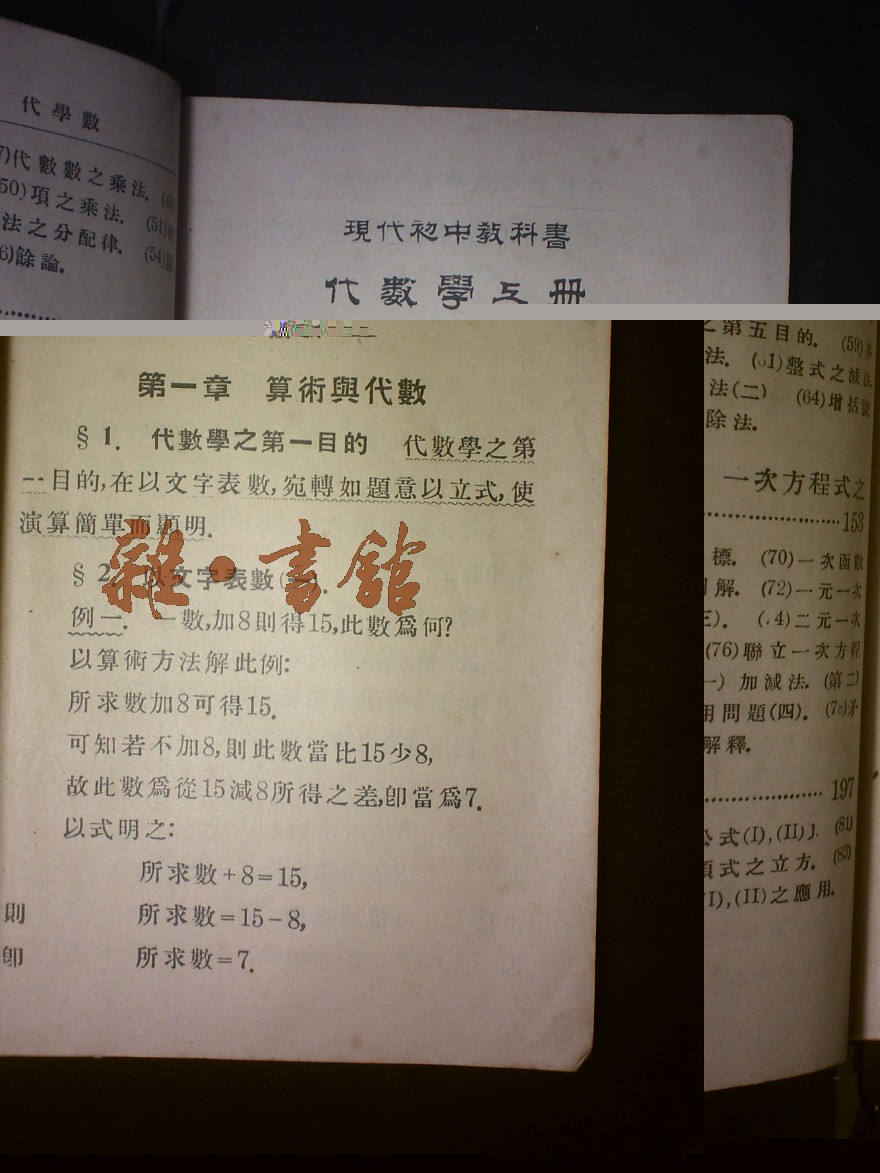 代學數
7)代數數之乘法.
50)項之乘法. (51)
法之分配律. (54)
6)餘論.
現代初中教科書
代數學上册
第一章 算術與代數
§1. 代數學之第一目的 代數學之第
一目的,在以文字表數,宛轉如題意以立式,使
演算簡單而顯明.
§2. 以文字表數
雜·書館
例一. 一數,加8則得15,此數爲何?
以算術方法解此例:
所求數加8可得15.
可知若不加8,則此數當比15少8,
故此數爲從15減8所得之差,卽當爲7.
以式明之:
所求數+8=15,
則 所求數=15-8,
卽 所求數=7.
之第五目的. (59)多
法. (61)整式之減法
法(二) (64)增括號
除法.
一次方程式之
153
標. (70)一次函數
解. (72)一元一次
(74)二元一次
(76)聯立一次方程
一) 加減法. (第二)
用問題(四). (78)矛
解釋.
197
公式(I),(II) (81)
項式之立方. (83)
I),(II)之應用.